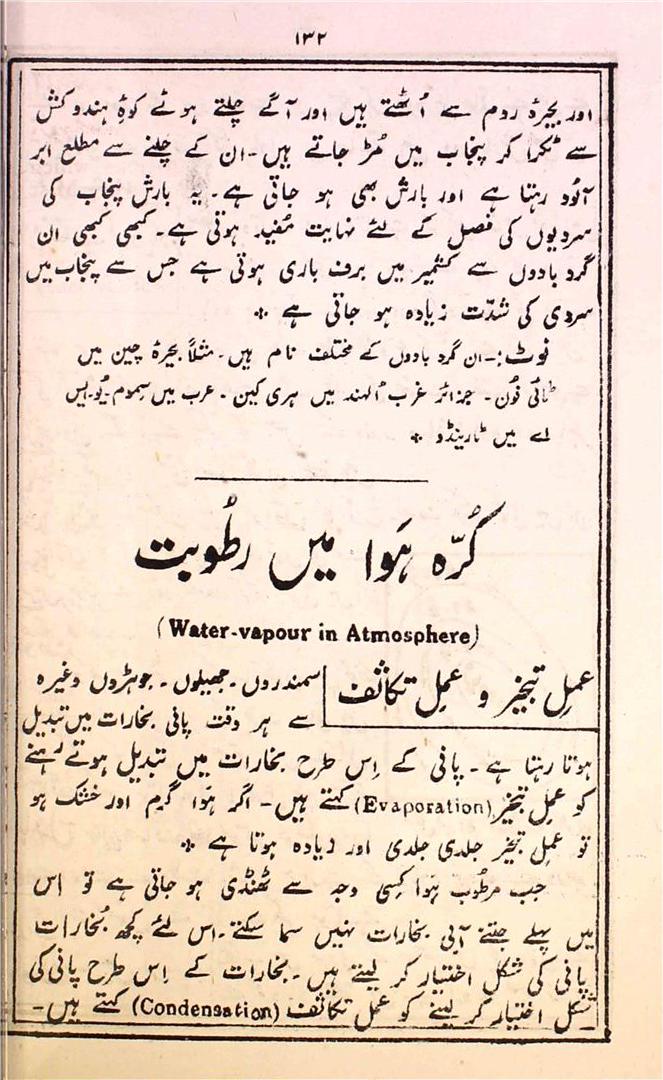 ۱۳۲
اور بحیرۂ روم سے اُٹھتے ہیں اور آگے چلتے ہوئے کوہِ ہندوکش
سے ٹکرا کر پنجاب میں مُڑ جاتے ہیں۔ ان کے چلنے سے مطلع ابر
آلود رہتا ہے اور بارش بھی ہو جاتی ہے۔ یہ بارش پنجاب کی
سردیوں کی فصل کے لئے نہایت مُفید ہوتی ہے۔ کبھی کبھی ان
گرد بادوں سے کشمیر میں برف باری ہوتی ہے جس سے پنجاب میں
سردی کی شدّت زیادہ ہو جاتی ہے ٭
نوٹ:۔ ان گرد بادوں کے مختلف نام ہیں۔ مثلاً بحیرۂ چین میں
ٹائی فُون۔ جزائر غرب الہند میں ہری کین۔ عرب میں سموم۔ یو۔ ایس
اے میں ٹارنیڈو ٭
کُرّہ ہَوا میں رطُوبت
(Water-vapour in Atmosphere)
عملِ تبخیر و عملِ تکاثف
سمندروں۔ جھیلوں۔ جوہڑوں وغیرہ
سے ہر وقت پانی بخارات میں تبدیل
ہوتا رہتا ہے۔ پانی کے اِس طرح بخارات میں تبدیل ہوتے رہنے
کو عملِ تبخیر (Evaporation) کہتے ہیں۔ اگر ہَوا گرم اور خشک ہو
تو عملِ تبخیر جلدی جلدی اور زیادہ ہوتا ہے ٭
جب مرطُوب ہَوا کِسی وجہ سے ٹھنڈی ہو جاتی ہے تو اِس
میں پہلے جتنے آبی بخارات نہیں سما سکتے۔ اس لئے کچھ بُخارات
پانی کی شکل اختیار کر لیتے ہیں۔ بخارات کے اِس طرح پانی کی
شکل اختیار کر لینے کو عملِ تکاثف (Condensation) کہتے ہیں۔